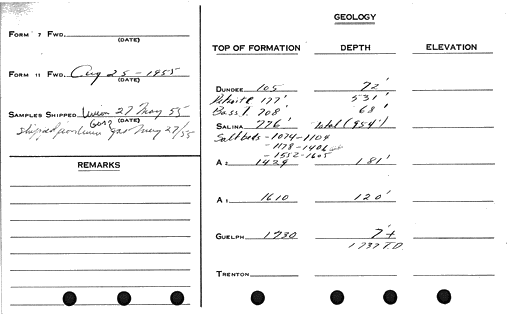 FORM 7 FWD.
(DATE)
FORM 11 FWD. Aug 25 - 1955
(DATE)
SAMPLES SHIPPED Union 27 May 55
Gas (DATE)
shipped from Union Gas May 27/55
REMARKS
GEOLOGY
TOP OF FORMATION DEPTH ELEVATION
DUNDEE 105 72'
Detroit R 177' 531'
Bass I. 708' 68'
SALINA 776' total (954')
Salt beds - 1074 - 1104
- 1178 - 1406
- 1552 - 1605
A2 1429 181'
A1 1610 120'
GUELPH 1730 7'+
1737 T.D.
TRENTON